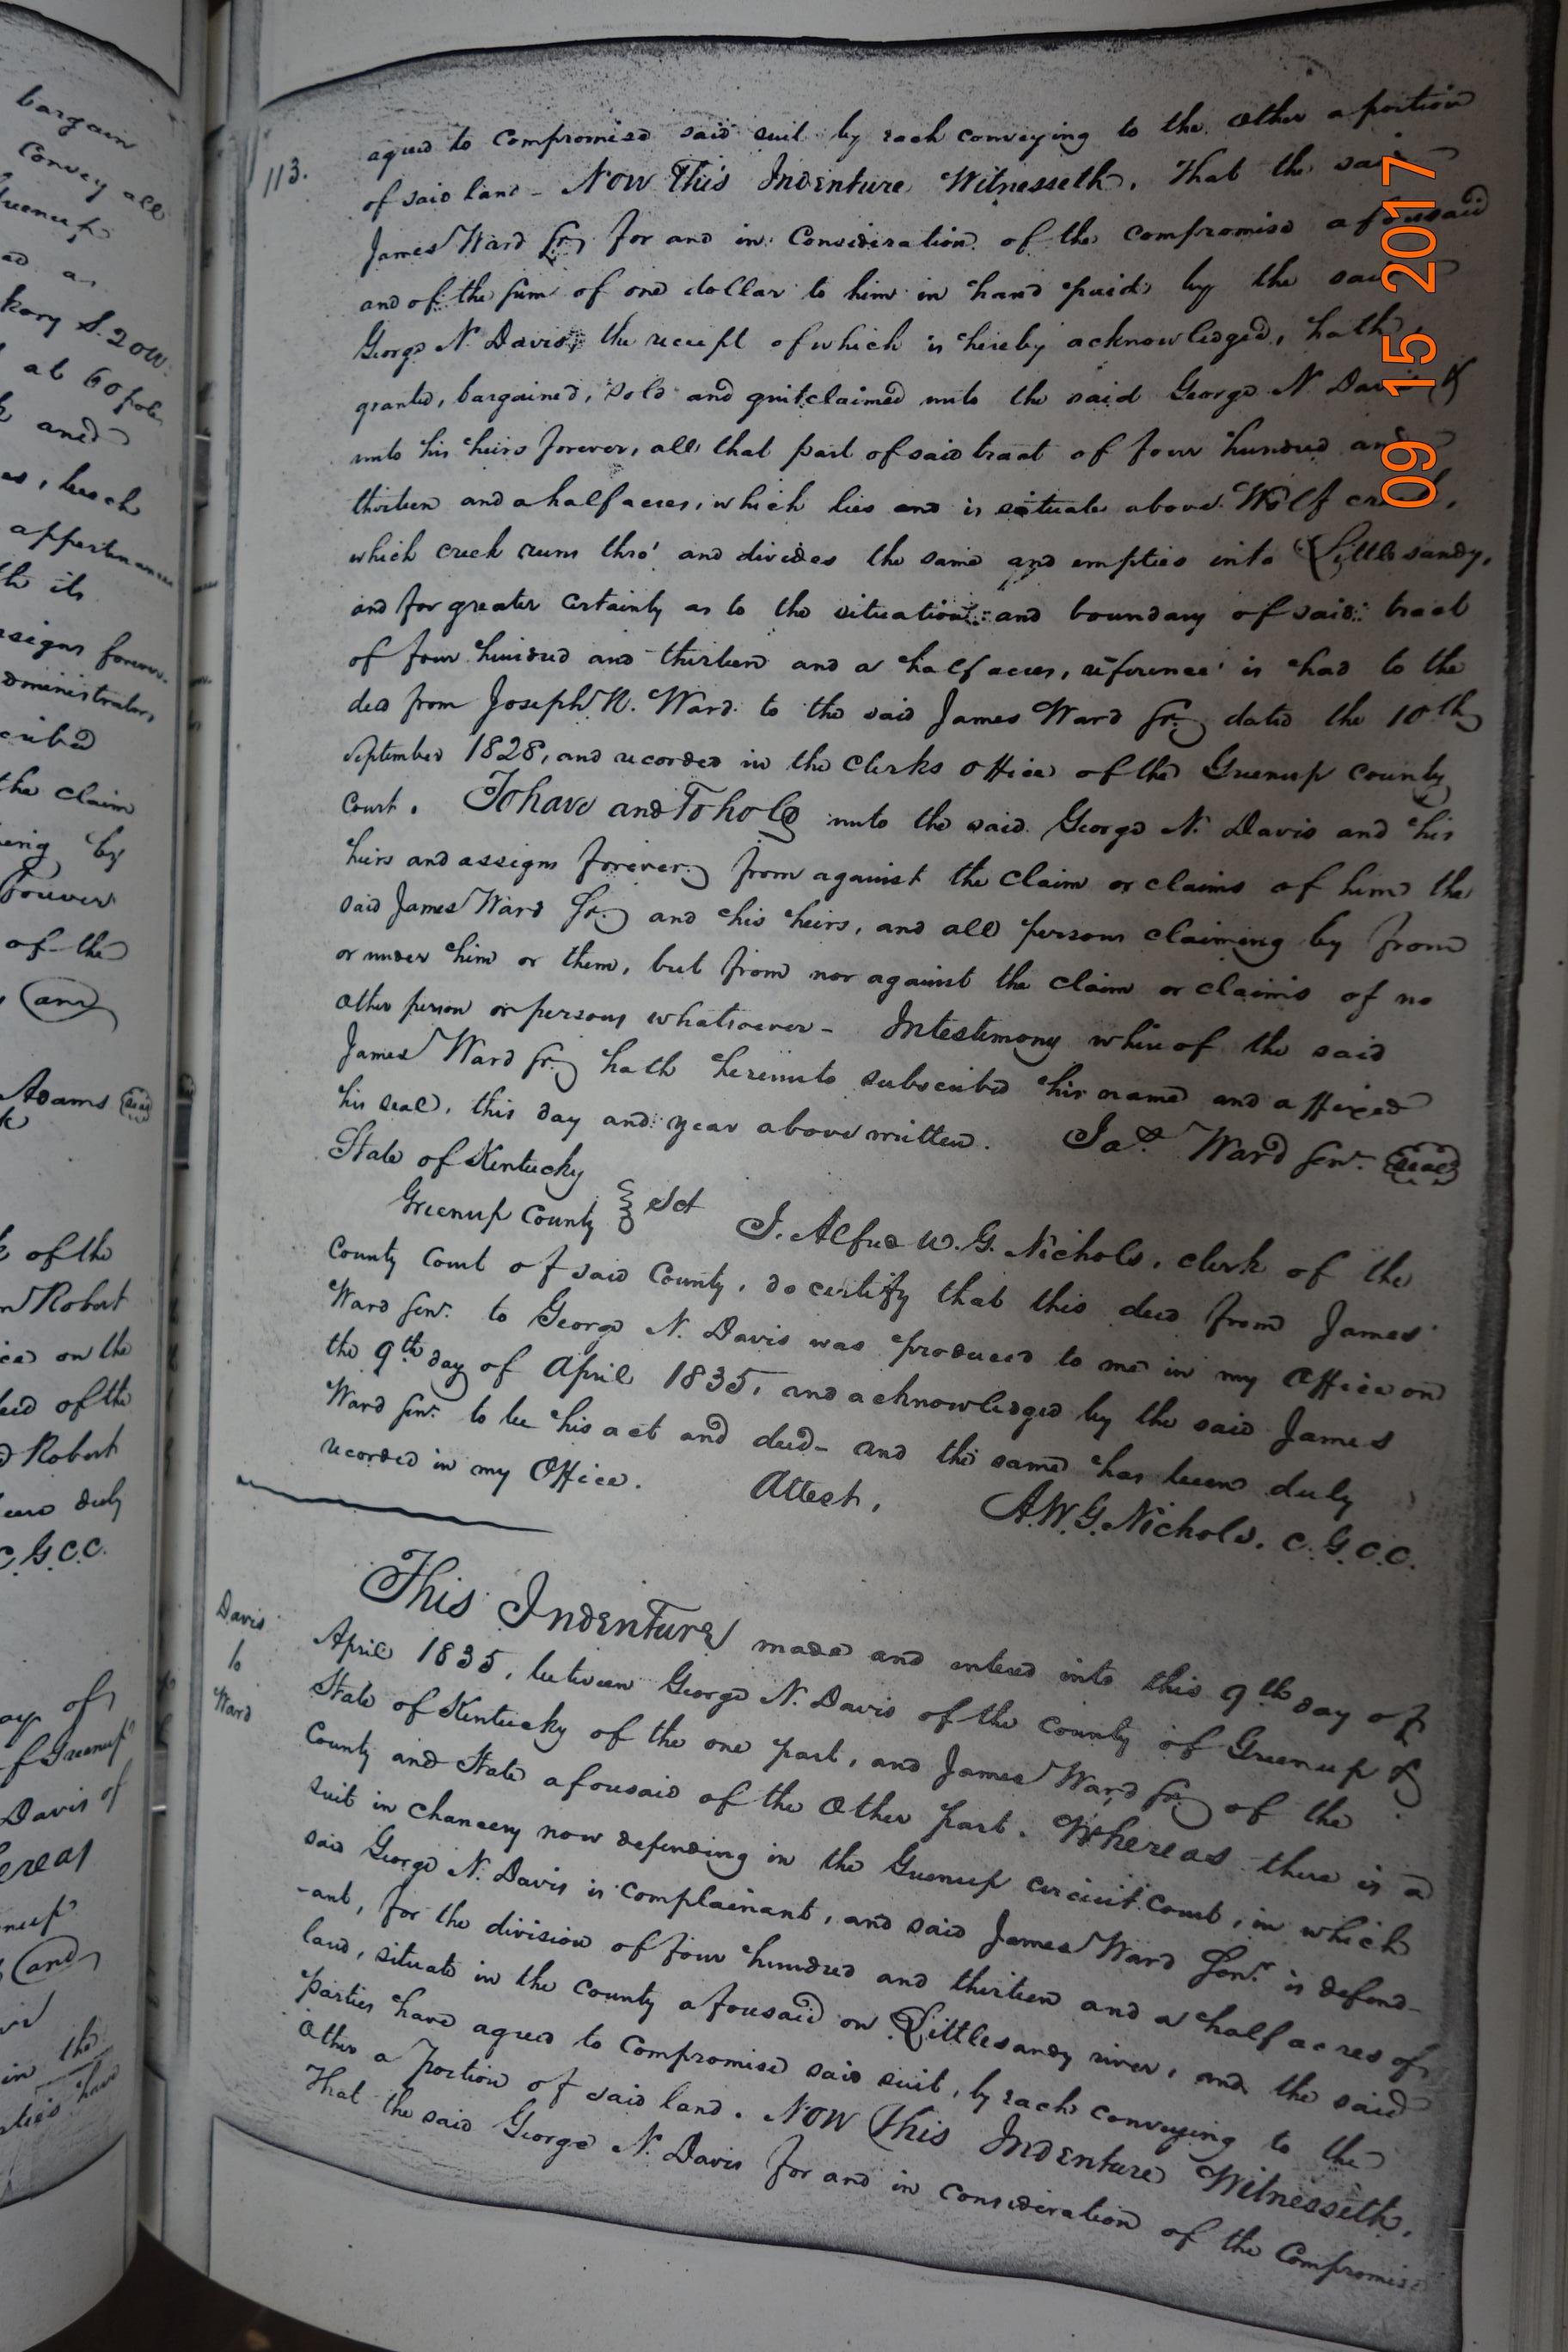 bargain
Convey all
Greenup
ad as
kory S. 20 W.
at 60 poles
and
as, beech
appertenances
th its
assigns forever
administrators
cribed
the claim
being by
forever
of the
and
Adams Seal
of the
Robert
on the
deed of the
Robert
duly
C. G. C. C.
day of
of Greenup
Davis of
Whereas
Greenup
and
in the
parties have
113.
agreed to Compromise said suit by each conveying to the Other a portion
of said land - Now This Indenture Witnesseth, That the said
James Ward Sr. for and in Consideration of the compromise aforesaid
and of the sum of one dollar to him in hand paid by the said
George N. Davis, the receipt of which is hereby acknowledged, hath
granted, bargained, sold and quitclaimed unto the said George N. Davis &
unto his heirs forever, all that part of said tract of four hundred and
thirteen and a half acres, which lies and is situate above Wolf creek,
which creek runs thro' and divides the same and empties into Little sandy,
and for greater certainty as to the situation and boundary of said tract
of four hundred and thirteen and a half acres, reference is had to the
deed from Joseph N. Ward to the said James Ward Sr. dated the 10th
September 1828, and recorded in the clerks office of the Greenup county
Court. To have and To hold unto the said George N. Davis and his
heirs and assigns forever from against the claim or claims of him the
said James Ward Sr. and his heirs, and all persons claiming by from
or under him or them, but from nor against the claim or claims of no
Other person or persons whatsoever - In testimony whereof the said
James Ward Sr. hath hereunto subscribed his name and affixed
his seal, this day and year above written. Jas. Ward Senr. Seal
State of Kentucky
Greenup County } Sct
I. Alfred W. G. Nichols, clerk of the
County Court of said County, do certify that this deed from James
Ward Senr. to George N. Davis was produced to me in my Office on
the 9th day of April 1835, and acknowledged by the said James
Ward Senr. to be his act and deed - and the same has been duly
recorded in my Office. Attest, A. W. G. Nichols. C. G. C. C.
Davis
to
Ward
This Indenture made and entered into this 9th day of
April 1835, between George N. Davis of the county of Greenup &
State of Kentucky of the one part, and James Ward Sr. of the
County and State aforesaid of the Other part. Whereas there is a
suit in chancery now depending in the Greenup circuit Court, in which
said George N. Davis is complainant, and said James Ward Senr. is defend-
-ant, for the division of four hundred and thirteen and a half acres of
land, situate in the county aforesaid on Little sandy river, and the said
parties have agreed to compromise said suit, by each conveying to the
Other a portion of said land. Now This Indenture Witnesseth.
That the said George N. Davis for and in consideration of the Compromise
09 15 2017